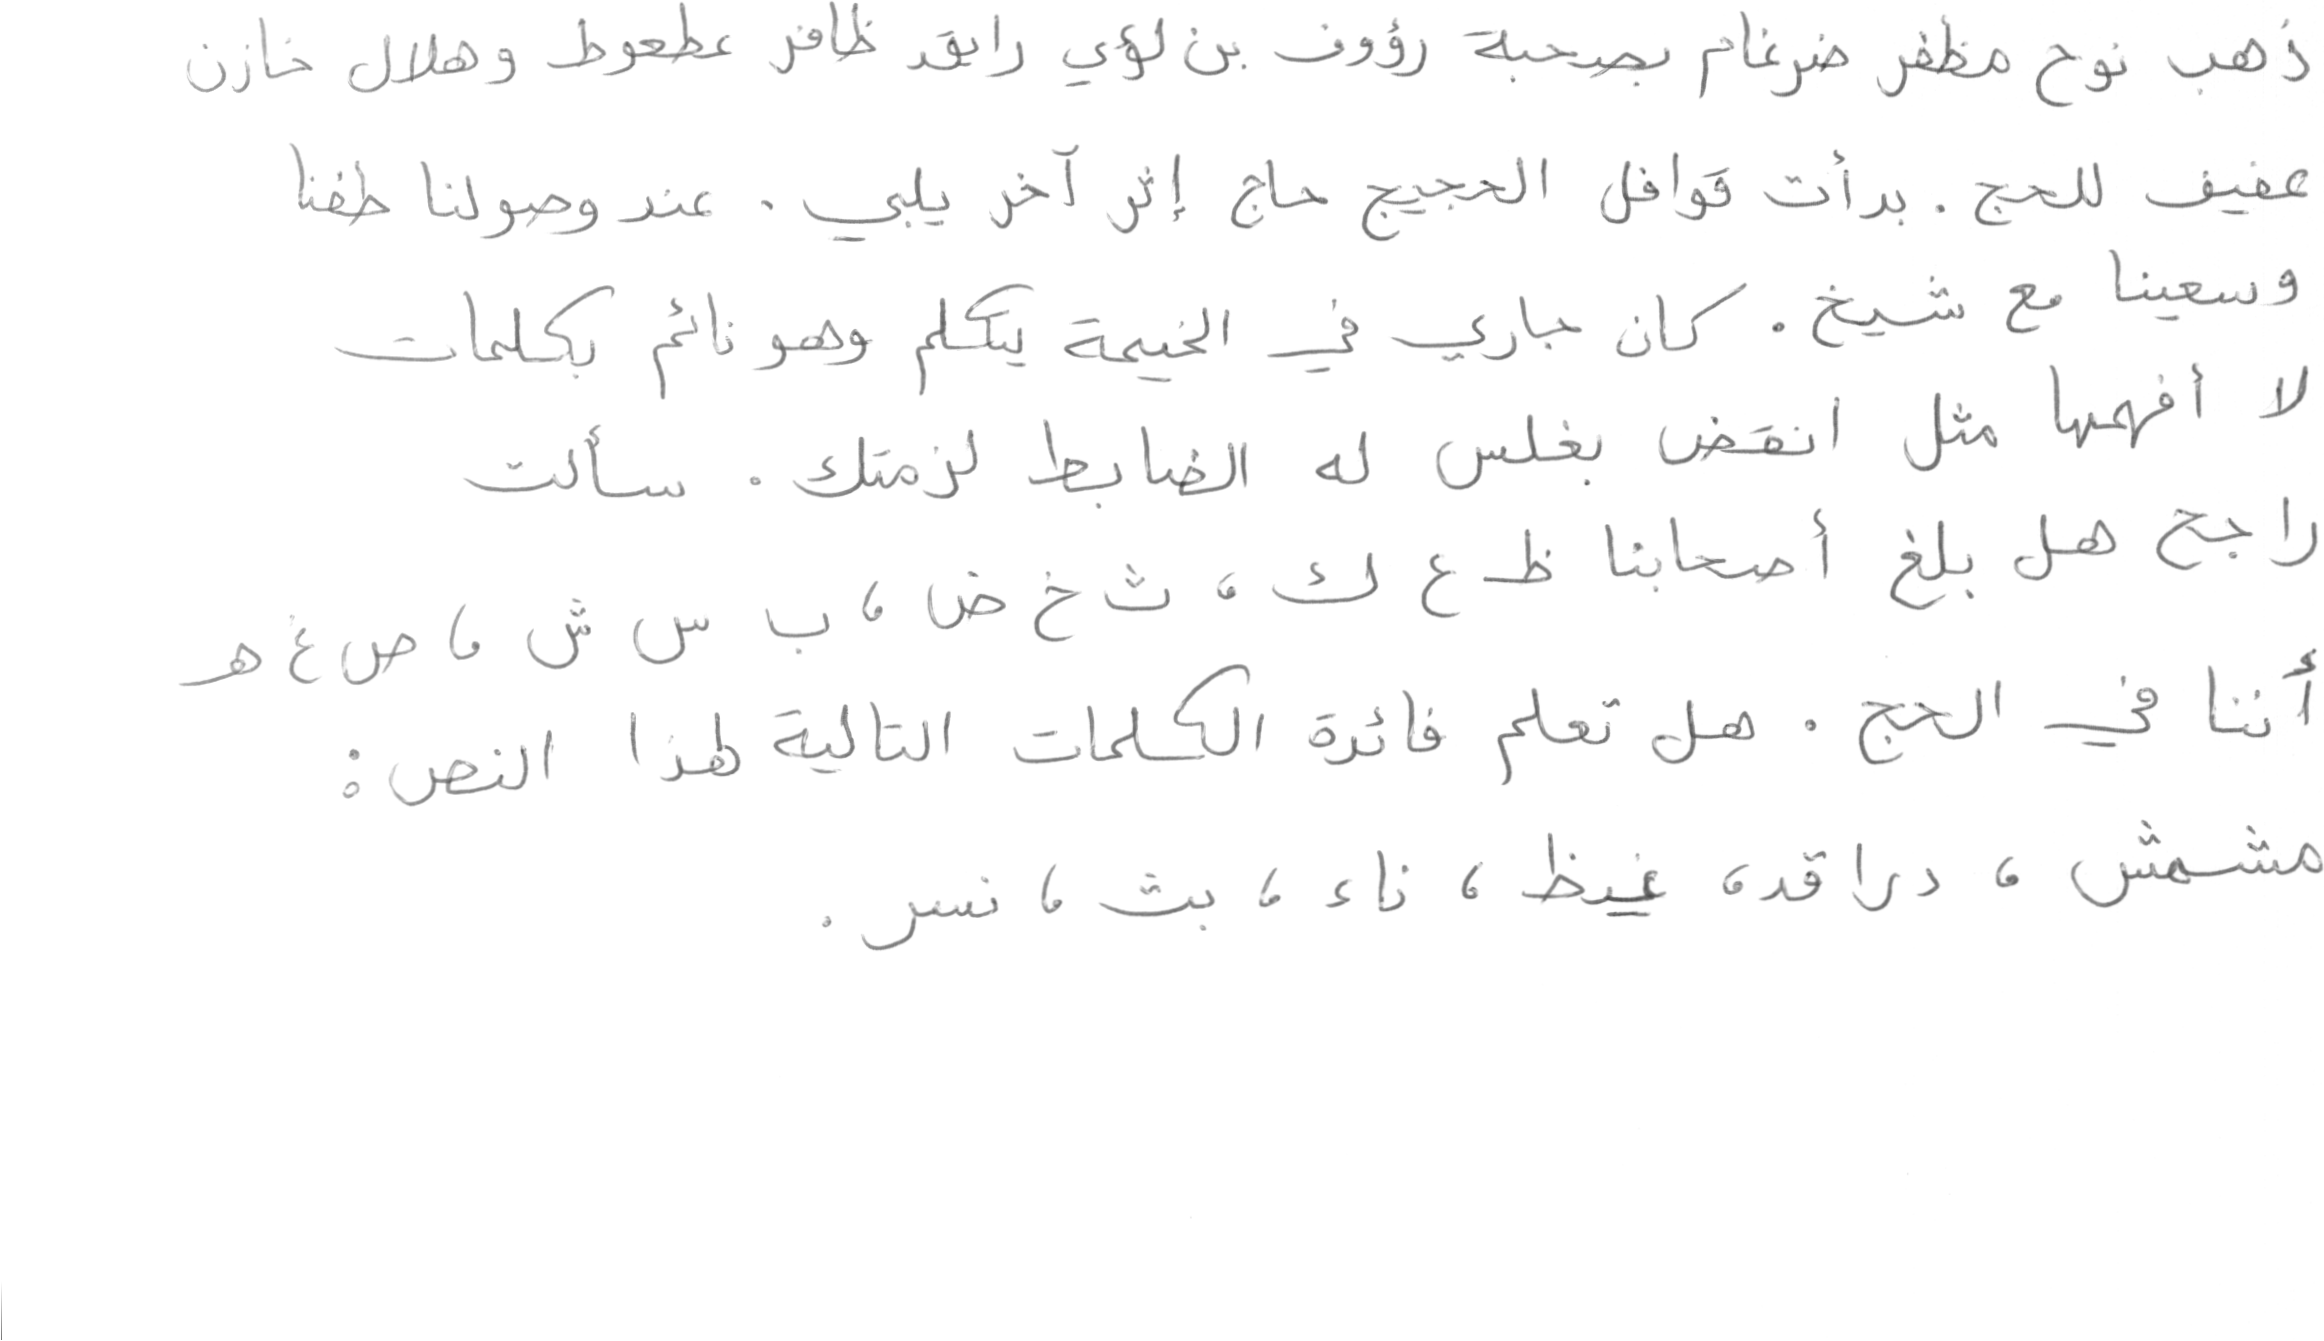 ذهب نوح مظفر ضرغام بصحبة رؤوف بن لؤي رايقد ظافر عطعوط وهلال خازن
عفيف للحج . بدأت قوافل الحجيج حاج إثر آخر يلبي . عند وصولنا طفنا
وسعينا مع شيخ . كان جاري في الخيمة يتكلم وهو نائم بكلمات
لا أفهمها مثل انقض بغلس له الضابط لزمتك . سألت
راجح هل بلغ أصحابنا ظ ع ك ، ث خ ض ، ب س ش ، ص غ هـ
أننا في الحج . هل تعلم فائدة الكلمات التالية لهذا النص :
مشمش ، دراقد، غيظ ، ناء ، بث ، نسر .